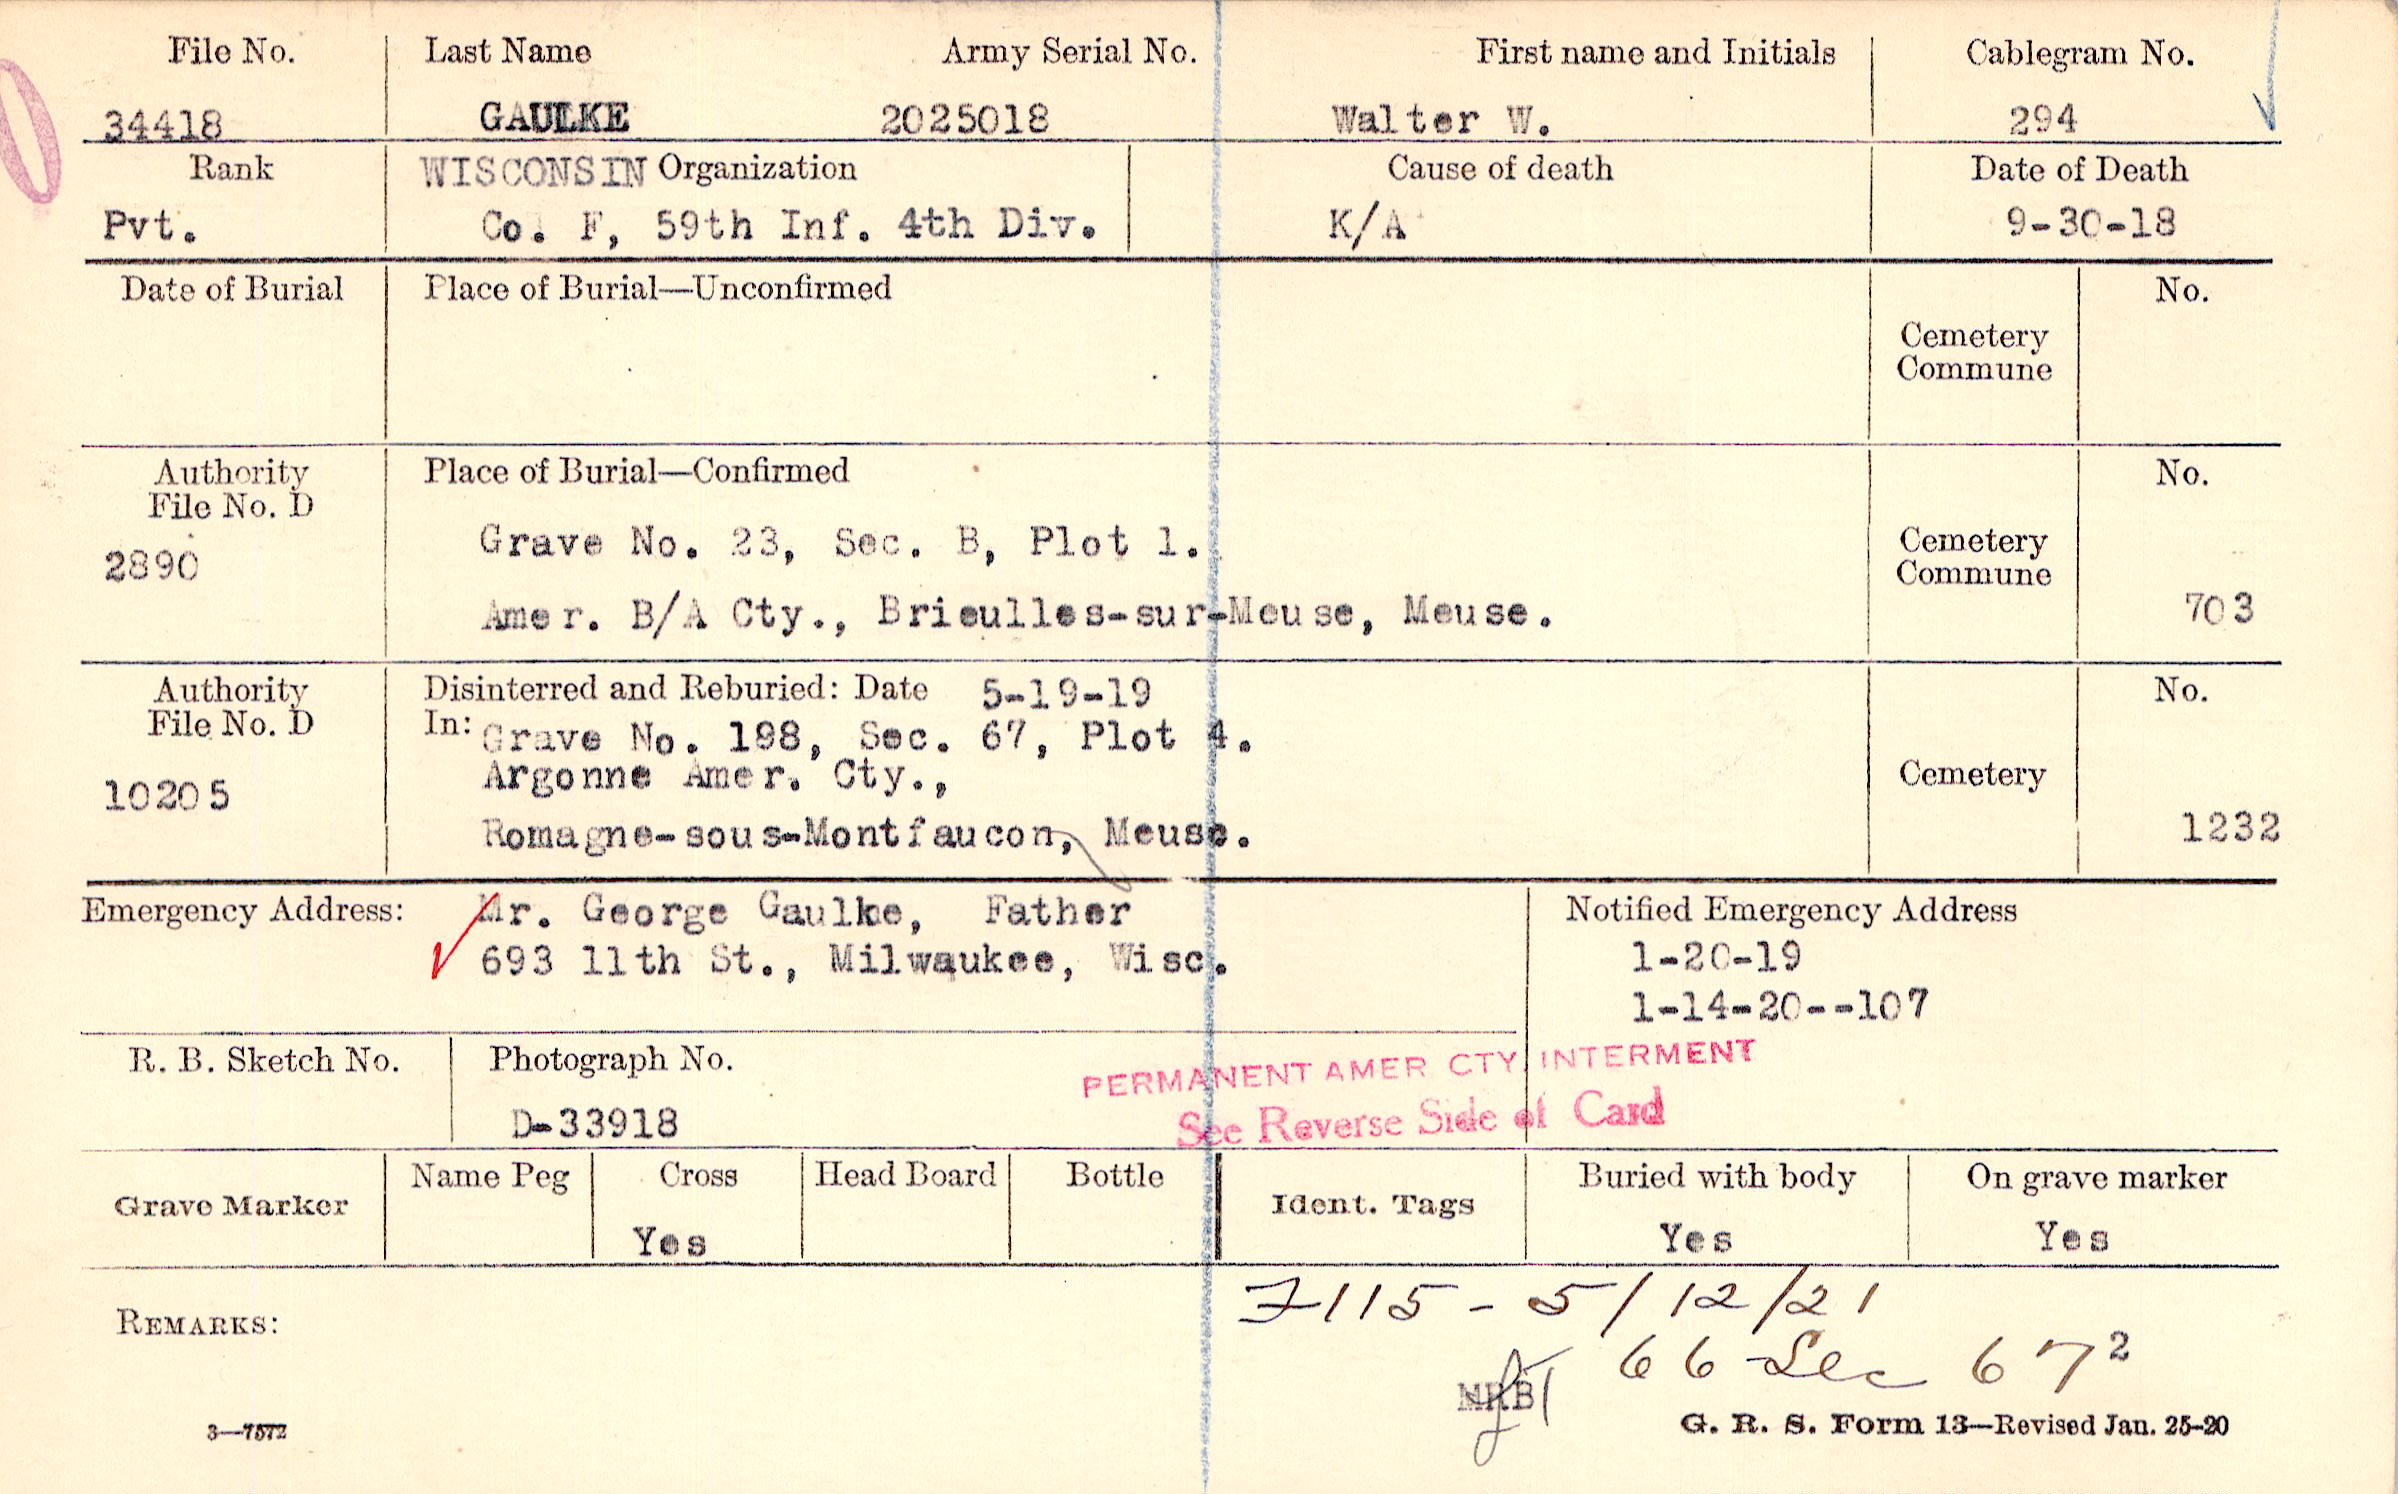 File No. Last Name Army Serial No. First name and Initials Cablegram No.
34418 GAULKE 2025018 Walter W. 294
Rank WISCONSIN Organization Cause of death Date of Death
Pvt. Co. F, 59th Inf. 4th Div. K/A 9-30-18
Date of Burial Place of Burial—Unconfirmed No.
Cemetery
Commune
Authority Place of Burial—Confirmed No.
File No. D
Grave No. 23, Sec. B, Plot 1. Cemetery
2890 Commune
Amer. B/A Cty., Brieulles-sur-Meuse, Meuse. 703
Authority Disinterred and Reburied: Date 5-19-19 No.
File No. D In: Grave No. 198, Sec. 67, Plot 4.
Argonne Amer. Cty., Cemetery
10205
Romagne-sous-Montfaucon, Meuse. 1232
Emergency Address: Mr. George Gaulke, Father Notified Emergency Address
693 11th St., Milwaukee, Wisc. 1-20-19
1-14-20--107
R. B. Sketch No. Photograph No. PERMANENT AMER CTY INTERMENT
D-33918 See Reverse Side of Card
Grave Marker Name Peg Cross Head Board Bottle Ident. Tags Buried with body On grave marker
Yes Yes Yes
7115 - 5/12/21
REMARKS:
66 Sec 67²
MRB
3—7572 G. R. S. Form 13—Revised Jan. 25-20